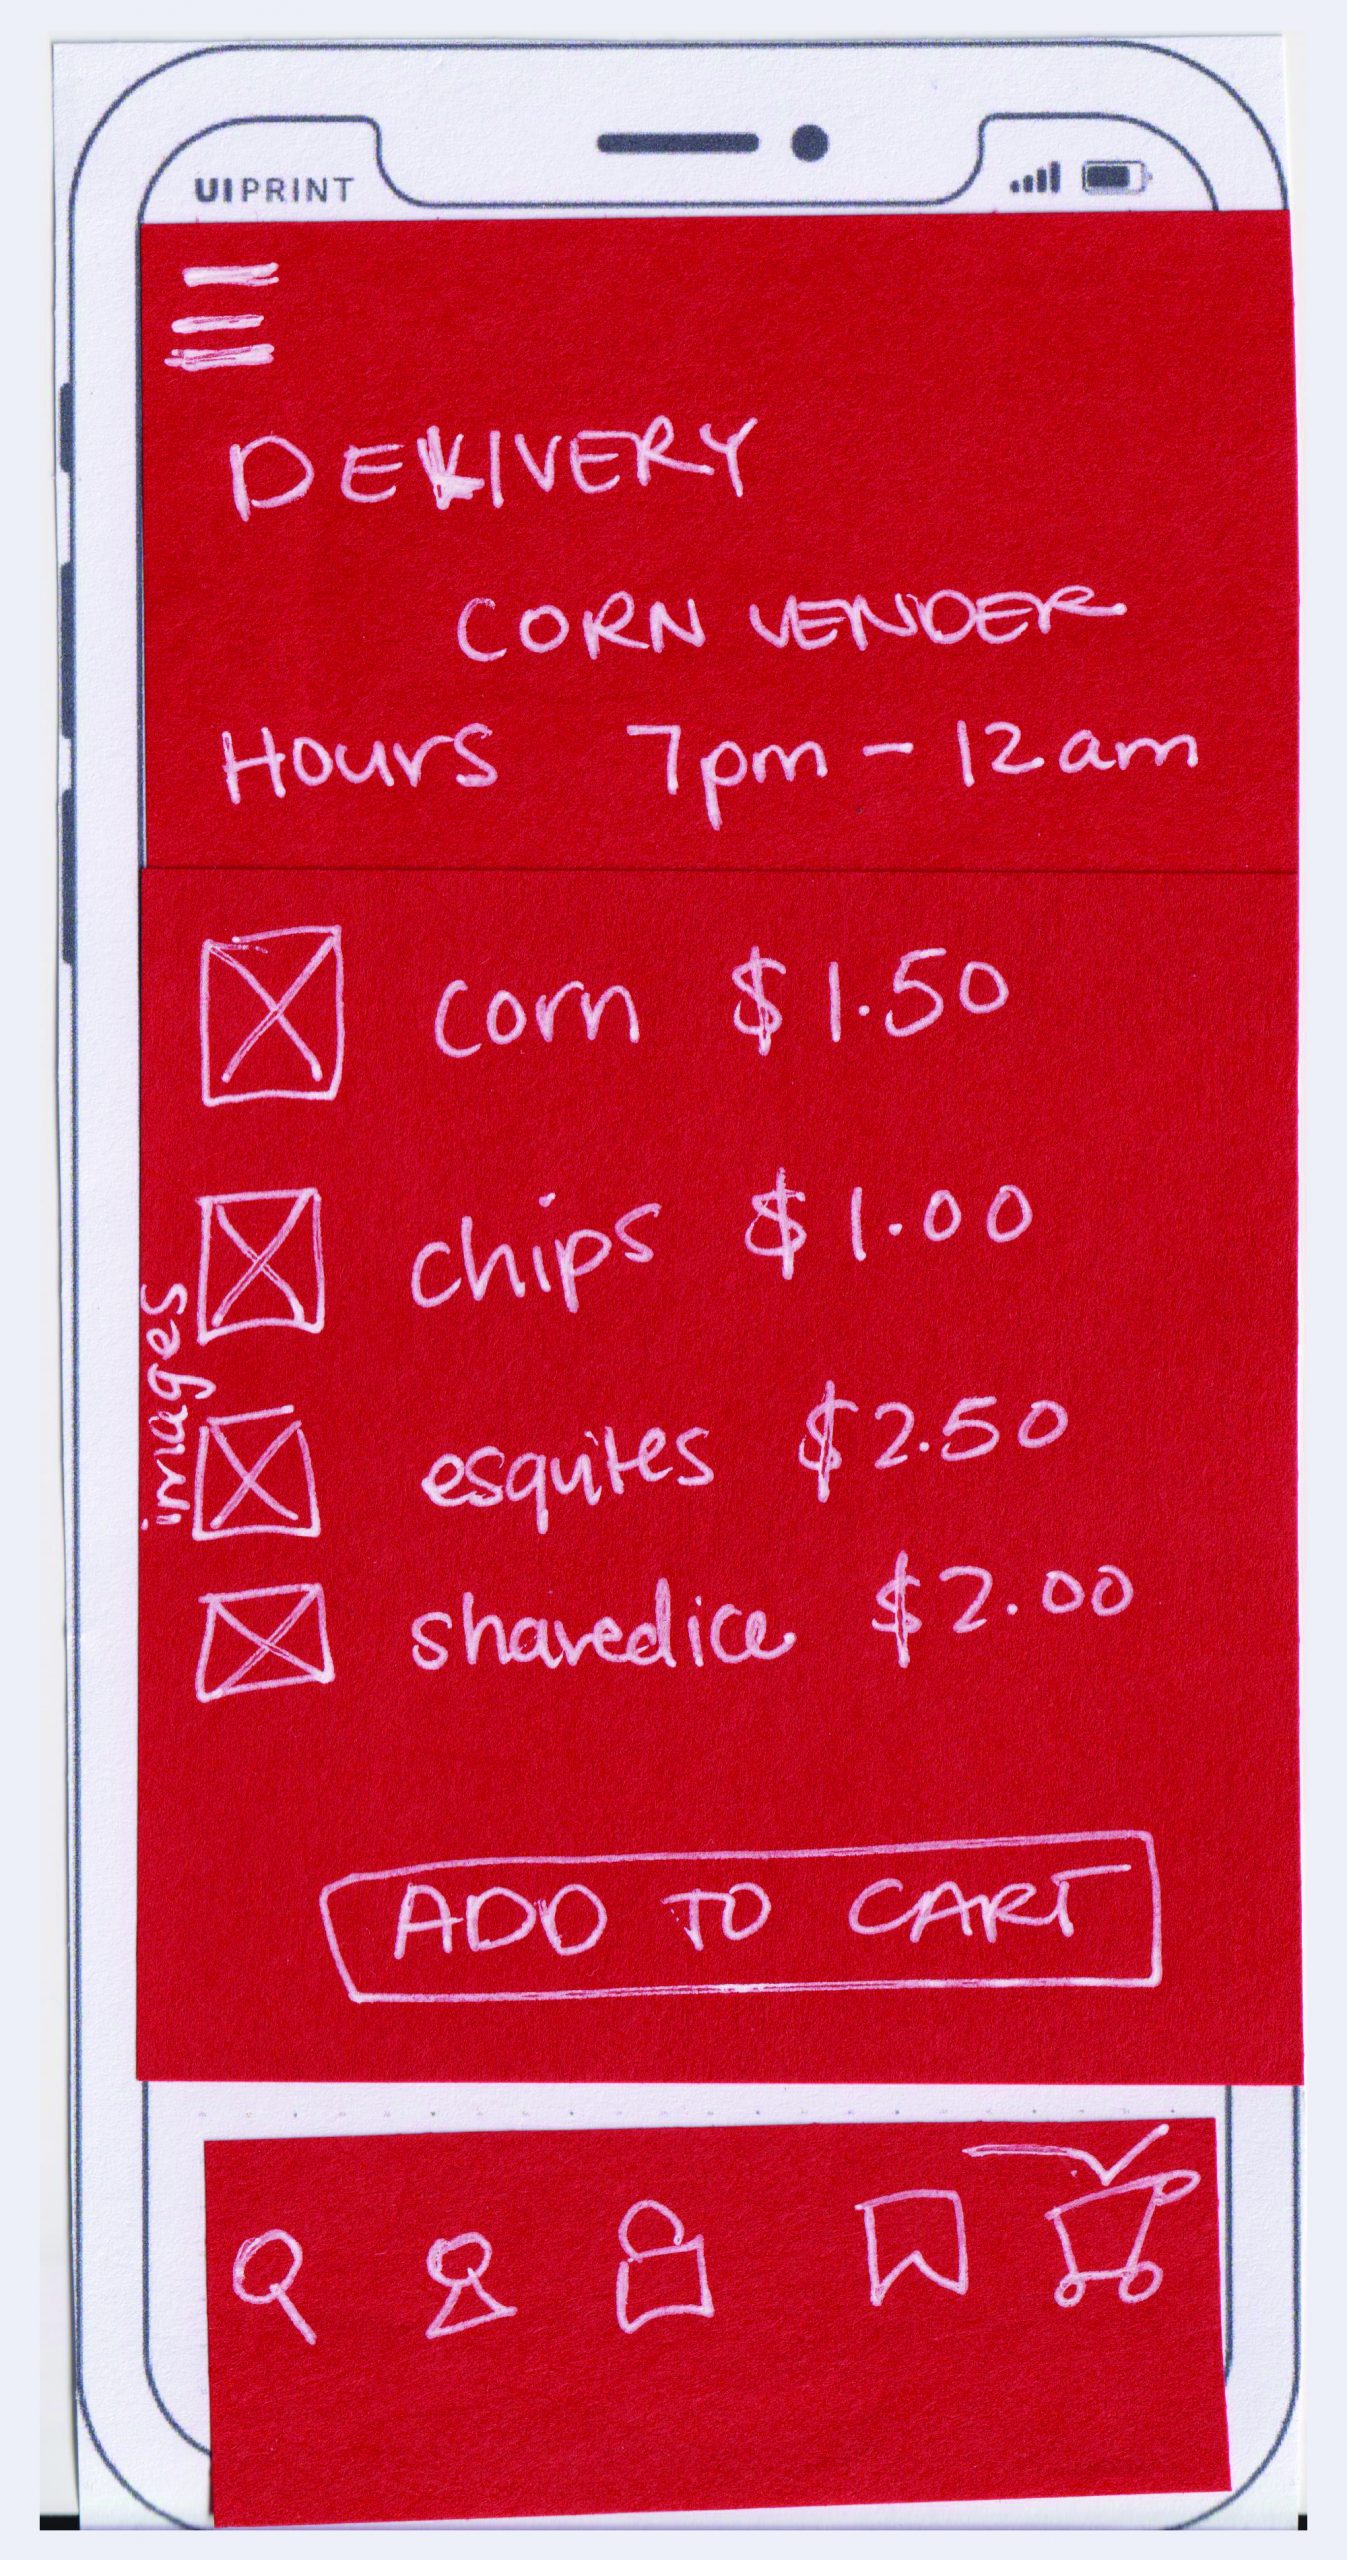 UIPRINT
DELIVERY
CORN VENDER
Hours 7pm - 12am
corn $1.50
chips $1.00
images
esquites $2.50
shavedice $2.00
ADD TO CART